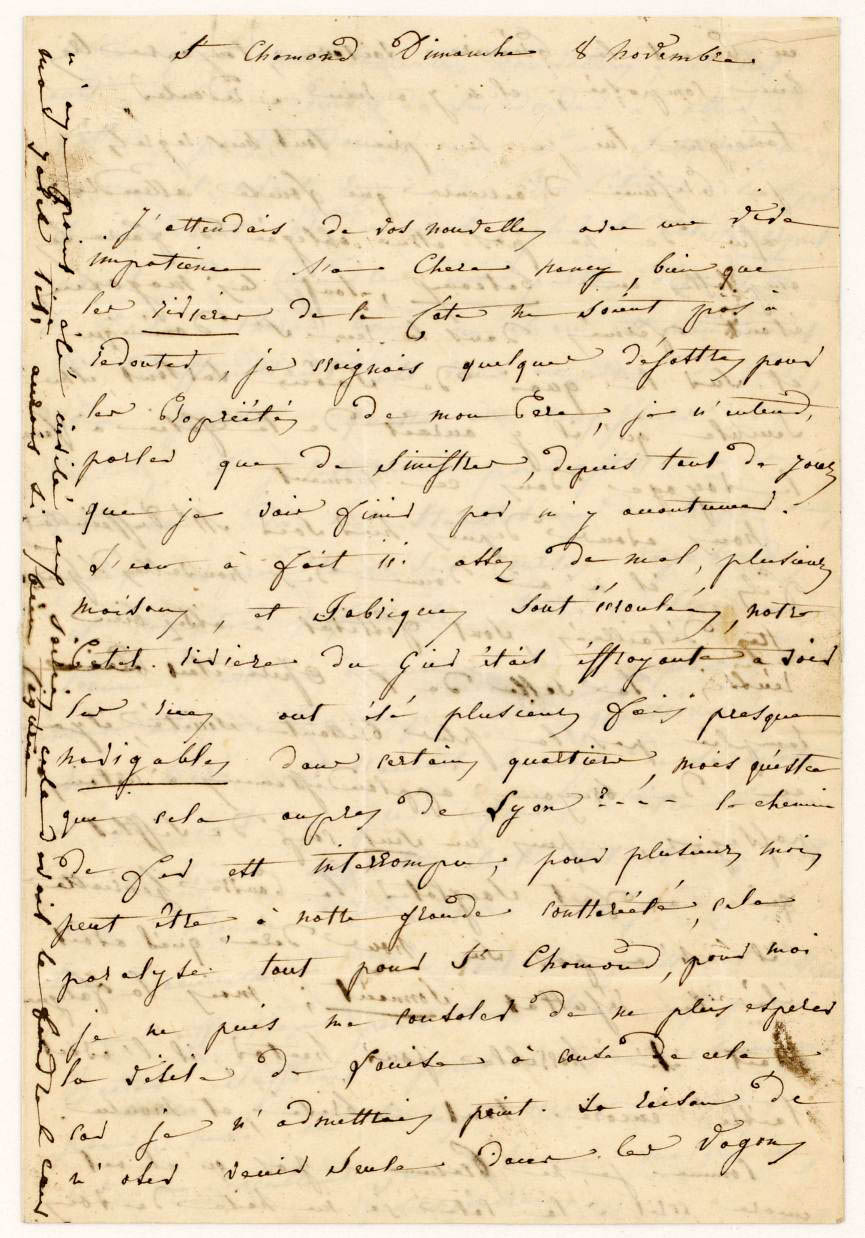 St Chomond Dimanche 8 Novembre
J'attendais de vos nouvelles avec une vive
impatience Ma Chere Nancy, bien que
les rivieres de la Côte ne soient pas à
redouter, je craignais quelque désastre pour
les Propriétés de mon Pere, je n'entend,
parler que de Sinistres, depuis tout de jours
que je vais finir par m'y accoutumer.
L'eau à fait ici assez de mal, plusieurs
maisons, et Fabriques sont écroulées, notre
Petite riviere du Gier était éffroyante a voir
les rues ont été plusieurs fois presque
navigables dans certains quartiers, mais qu'estce
que cela aupres de Lyon ? - - - le chemin
de fer est interrompu, pour plusieurs mois
peut être, à notre grande contrariété, cela
paralyse tout pour St Chomond, pour moi
je ne puis me consoler de ne plus esperer
la visite de Louise à cause de cela
car je n'admettais point la raison de
n'oser venir seule dans les Vagons
n'aye point été invité aux soirées du